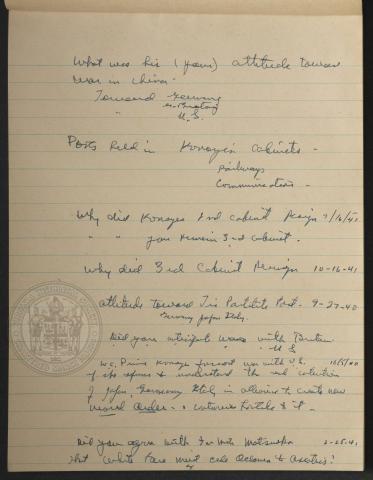 What was his (your) attitude toward
war in China -
Toward Germany
" Gr. Britain
U.S.
Posts held in Konoye's Cabinets -
Railways
Communications -
Why did Konoyes 2nd cabinet resign 7/16/41
" " you remain 3rd cabinet.
Why did 3rd Cabinet Resign 10-16-41
attitude toward Tri Partite Pact. 9-27-40
Germany Japan Italy.
Did you anticipate war with Britain
" " U S
Prince Konoye war with U.S.
if she refuses to understand the real
of Japan, Germany Italy in to create new
World Order - continues hostile
Did you agree with For Min Matsuoka 2-25-41
that White Race must cede Oceania to Asiatics?